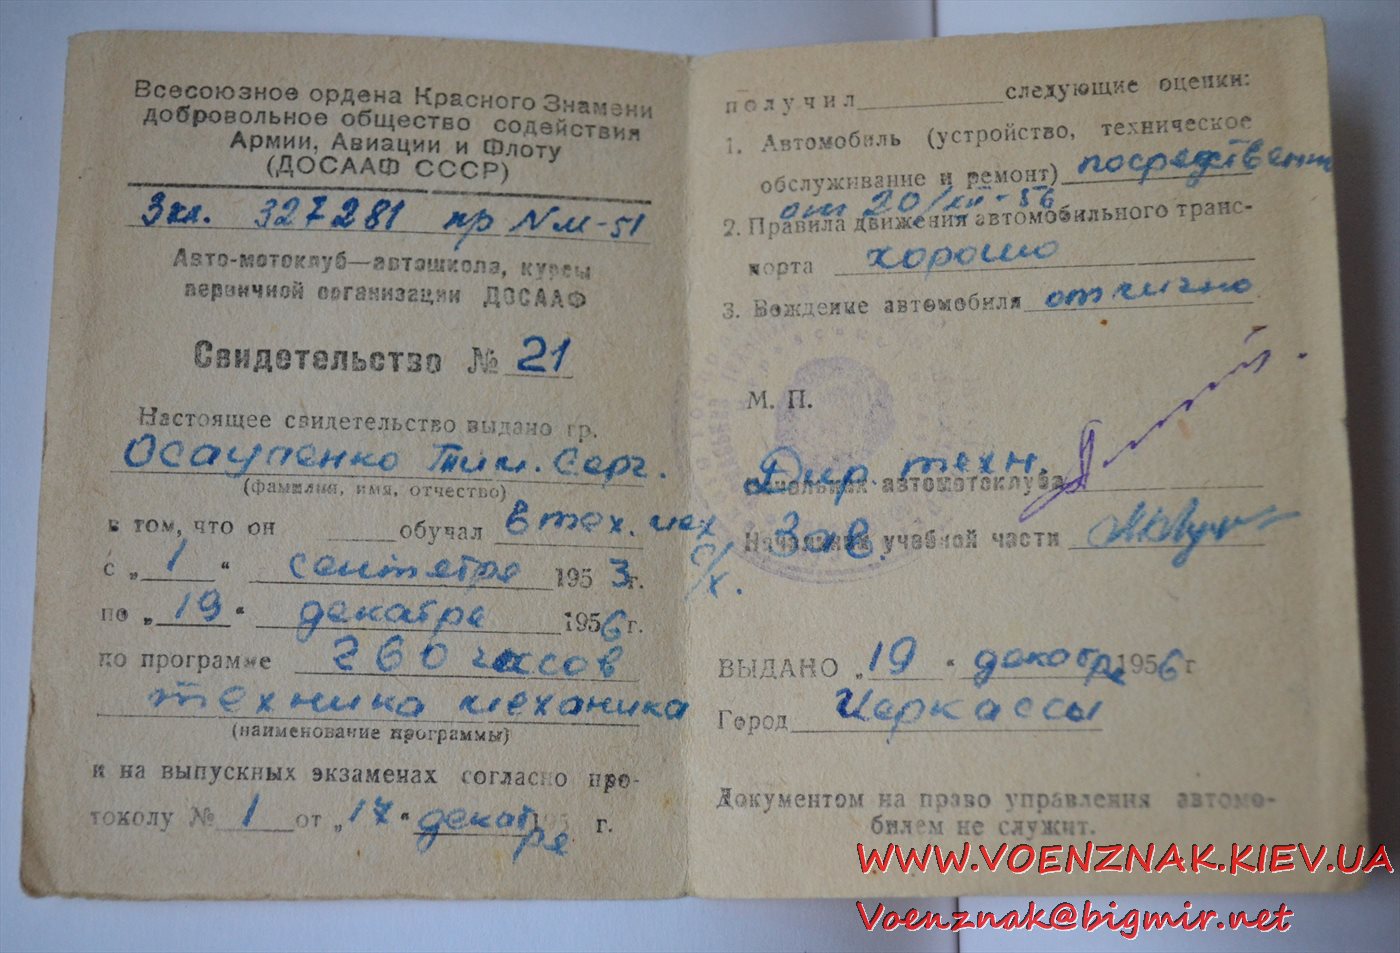 Всесоюзное ордена Красного Знамени
добровольное общество содействия
Армии, Авиации и Флоту
(ДОСААФ СССР)
Экл. 327281 пр N М-51
Авто-мотоклуб—автошкола, курсы
первичной организации ДОСААФ
Свидетельство № 21
Настоящее свидетельство выдано гр.
Осауленко Тим. Серг.
(фамилия, имя, отчество)
в том, что он обучал в тех. мех
с/х.
с „1“ сентября 1953г.
по „19“ декабря 1956г.
по программе 260 часов
техника механика
(наименование программы)
и на выпускных экзаменах согласно про-
токолу № 1 от „17“ декабря 195 г.
получил следующие оценки:
1. Автомобиль (устройство, техническое
обслуживание и ремонт) посредственно
от 20/XII-56
2. Правила движения автомобильного транс-
порта хорошо
3. Вождение автомобиля отлично
М. П.
Дир. техн.
Начальник автомотоклуба
Зав.
Начальник учебной части
ВЫДАНО „19“ декабря 1956г
Город Черкассы
Документом на право управления автомо-
билем не служит.
WWW.VOENZNAK.KIEV.UA
Voenznak@bigmir.net